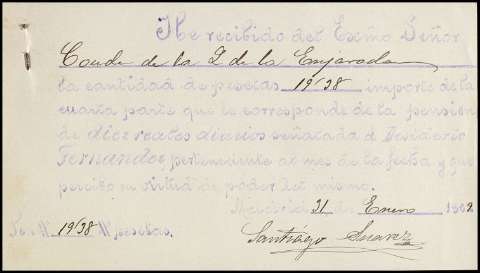 He recibido del Exmo Señor
Conde de la T. de la Enjarada
la cantidad de pesetas 19'38 importe de la
cuarta parte que le corresponde de la pension
de diez reales diarios señalada á Desiderio
Fernandez, perteneciente al mes de la fecha y que
percibo en virtud de poder del mismo.
Madrid 31 de Enero 1902
Son 19'38 pesetas.
Santiago Suarez